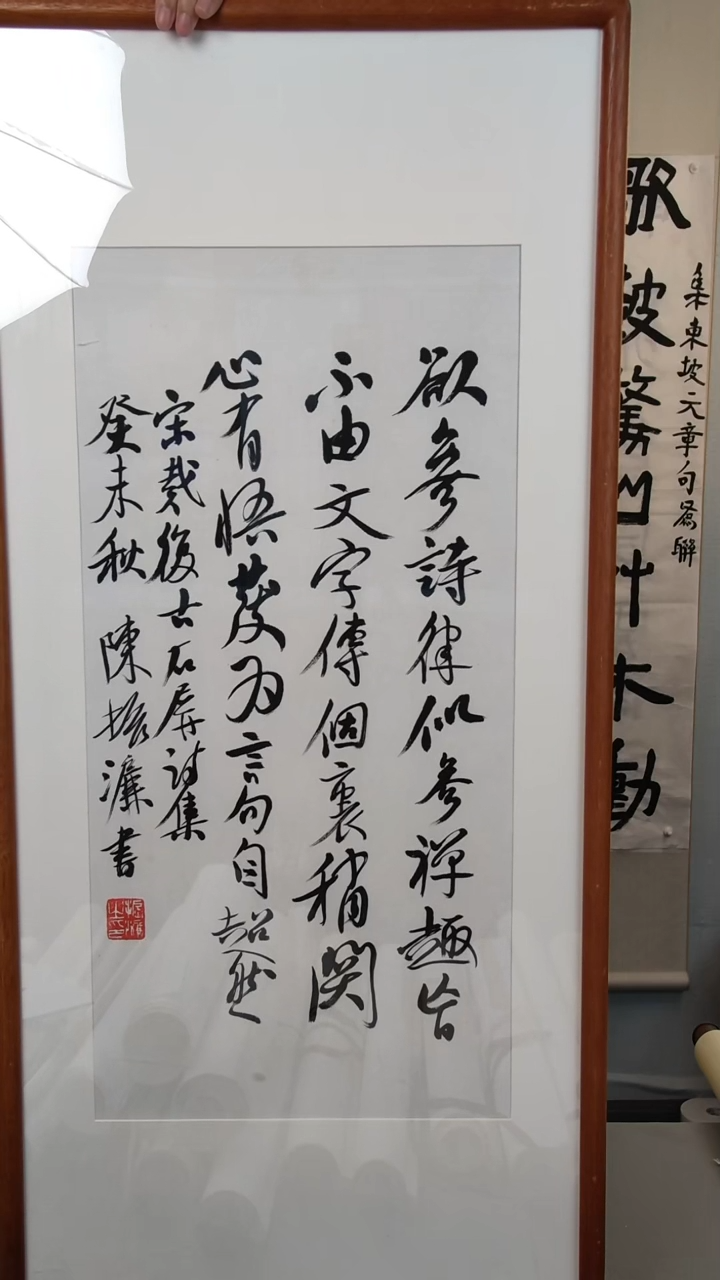 集東坡元章句為聯
山艸木動
欲參詩律似参禪趣旨
不由文字傳個裏稍関
心有悟發为言句自超然
宋戴復古石屏詩集
癸未秋 陳振濂書